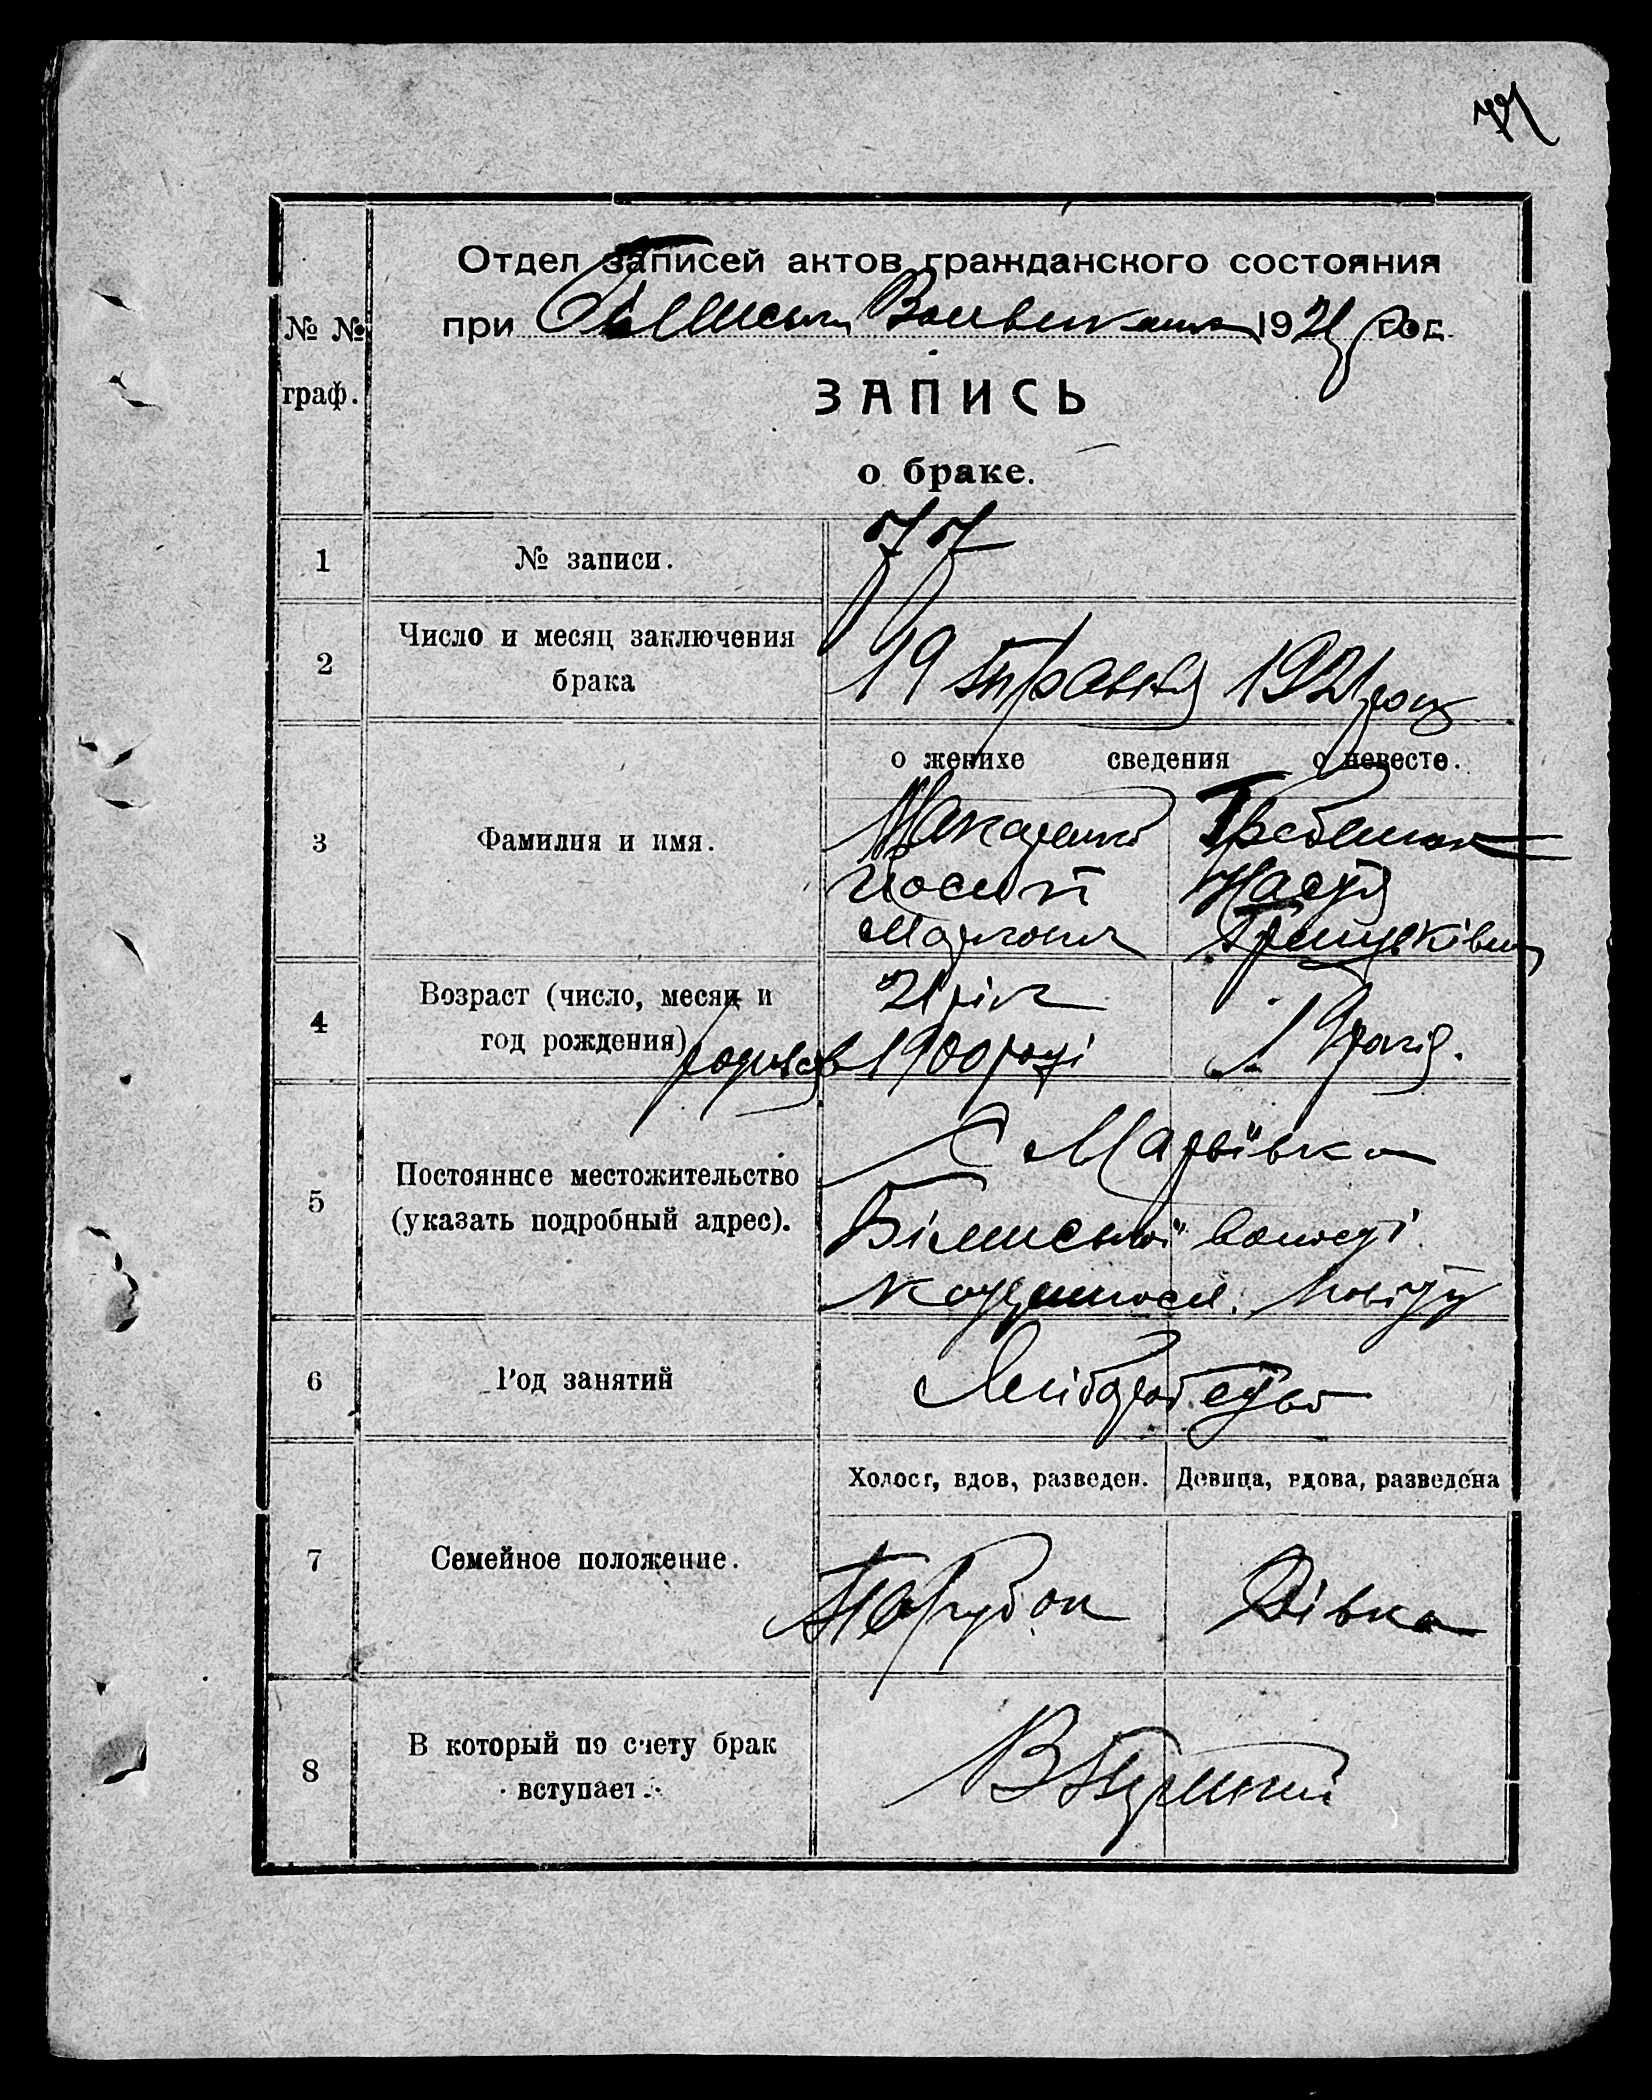 Отдел записей актов гражданского состояния
при Білиськім Волвиконкі 1921 год
№ №
граф.
ЗАПИСЬ
о браке.
1 № записи. 77
2 Число и месяц заключения брака 19 травня 1921 року
о женихе сведения о невесте.
3 Фамилия и имя.
Макаренко Гребенюк
Йосип Настя
Маркович
4 Возраст (число, месяц и
год рождения)
21 рік
родився 1900 році
5 Постоянное местожительство
(указать подробный адрес).
С Мар'ївка
Білиської волості
повіту
6 Род занятий Хліборобство
Холост, вдов, разведен. Девица, вдова, разведена
7 Семейное положение. Парубок Дівка
8 В который по счету брак
вступает.
В перший